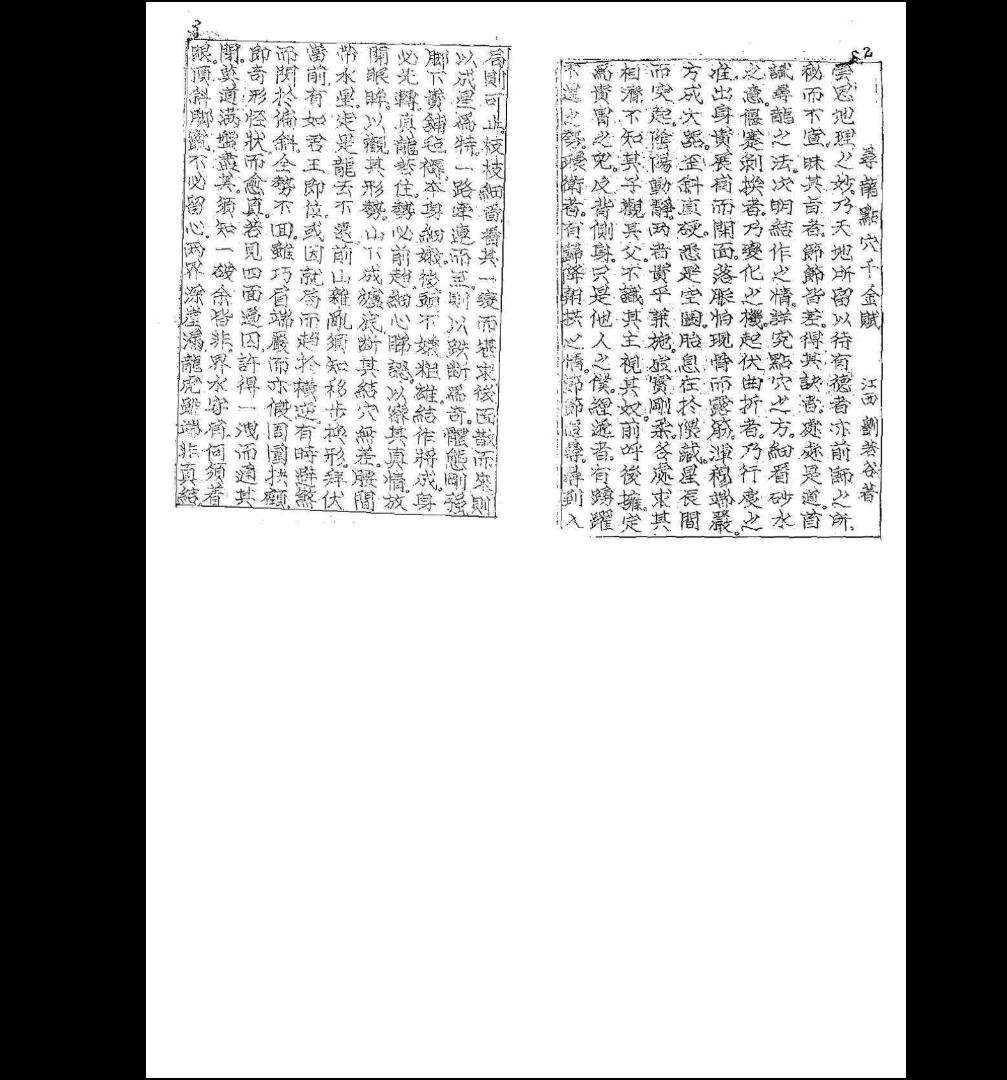 2
尋龍點穴千金賦 江西劉若谷著
嘗思地理之妙乃天地所留以待有德者亦前師之所
秘而不宣昧其旨者節節皆差得其訣者處處是道首
識尋龍之法次明結作之情詳究點穴之方細看砂水
之意偃蹇剝換者乃變化之機起伏曲折者乃行度之
准出身貴展肩而開面落脈怕現骨而露筋渾穆端嚴
方成大器歪斜直硬悉是空圖胎息在於偎藏星辰間
而突起陰陽動靜兩者貴乎兼施虛實剛柔各處求其
相濟不知其子觀其父不識其主視其奴前呼後擁定
為貴冑之兒反背側身只是他人之僕纏護者有踴躍
不遑之勢環衛者有歸降朝拱之情節節追尋尋到入
3
局則可止枝枝細看看其一變而堪求後面散而來則
以成星為特一路牽連而至則以跌斷為奇體態剛強
腳下貴鋪毡褥本身細嫩後頭不嫌粗雄結作將成身
必先轉真龍若住勢必前趨細心睇認以察其真情放
開眼眸以觀其形勢山下成窩底斷其結穴無差腰間
帶水星定是龍去不遠前山雜亂須知移步換形拜伏
當前有如君王即位或因就局而趨於橫逆有時避煞
而閃於倚斜全勢不回雖巧旨端嚴而亦假周圍拱顧
即奇形怪狀而愈真若見四面逼囚許得一洩而通其
閉莫道滿盤盡美須知一破余皆非界水守肩何須着
眼頂斜腳竄不必留心兩界深崖漏龍虎雖端非真結